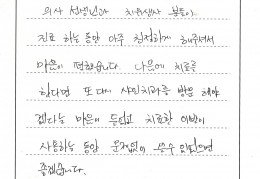 의사 선생님과 치위생사 분들이
진료 하는 동안 아주 친절하게 해주셔서
마음이 편했습니다. 다음에 치료를
한다면 또 다시 샤인치과를 방문 해야
겠다는 마음이 들었고 치료한 이빨이
사용하는 동안 문제없이 쓸수 있었으면
좋겠습니다.